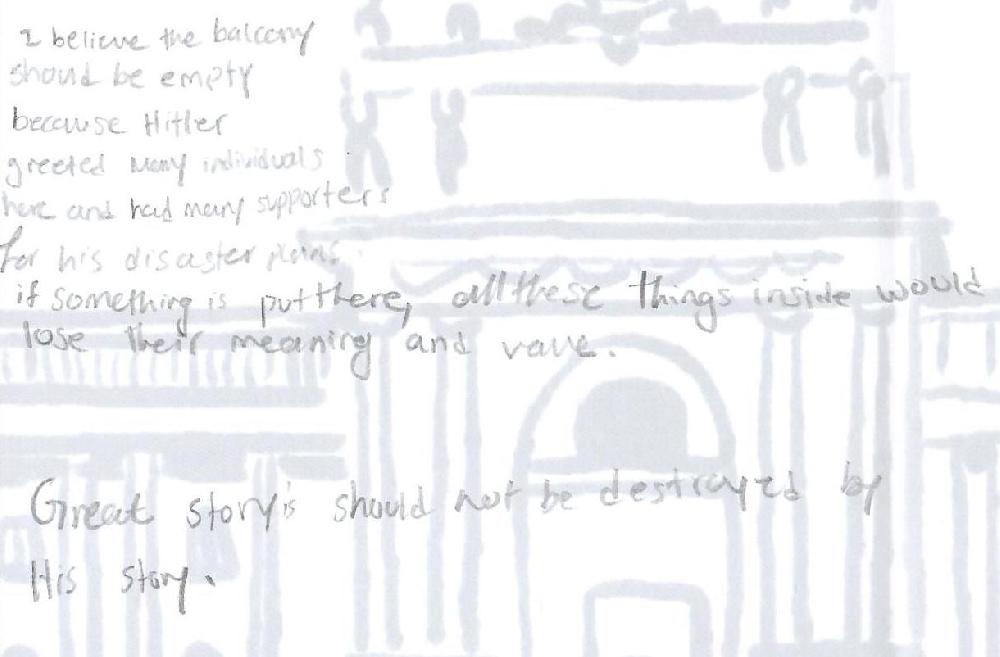 I believe the balcony
should be empty
because Hitler
greeted many individuals
here and had many supporters
for his disaster plans.
if something is put there, all these things inside would
lose their meaning and vaue.
Great story's should not be destrayed by
His story.